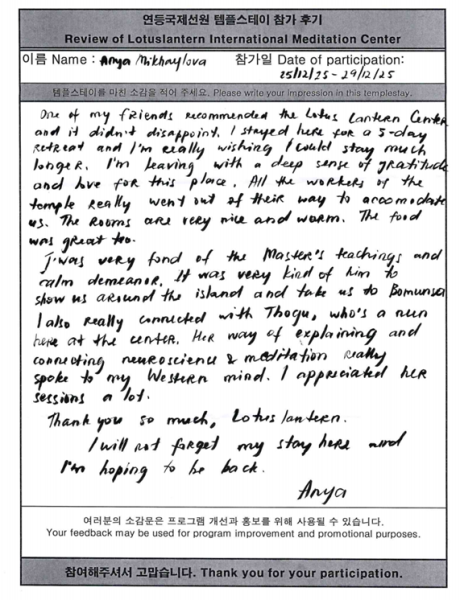 연등국제선원 템플스테이 참가 후기
Review of Lotuslantern International Meditation Center
이름 Name : Anya Mikhaylova 참가일 Date of participation:
25/12/25 - 29/12/25
템플스테이를 마친 소감을 적어 주세요. Please write your impression in this templestay.
One of my friends recommended the Lotus Lantern Center
and it didn't disappoint. I stayed here for a 5-day
retreat and I'm really wishing I could stay much
longer. I'm leaving with a deep sense of gratitude
and love for this place. All the workers of the
temple really went out of their way to accomodate
us. The rooms are very nice and warm. The food
was great too.
I was very fond of the Master's teachings and
calm demeanor. It was very kind of him to
show us around the island and take us to Bomunsa
I also really connected with Thogu, who's a nun
here at the center. Her way of explaining and
connecting neuroscience & meditation really
spoke to my Western mind. I appreciated her
sessions a lot.
Thank you so much, Lotus lantern.
I will not forget my stay here and
I'm hoping to be back.
Anya
여러분의 소감문은 프로그램 개선과 홍보를 위해 사용될 수 있습니다.
Your feedback may be used for program improvement and promotional purposes.
참여해주셔서 고맙습니다. Thank you for your participation.